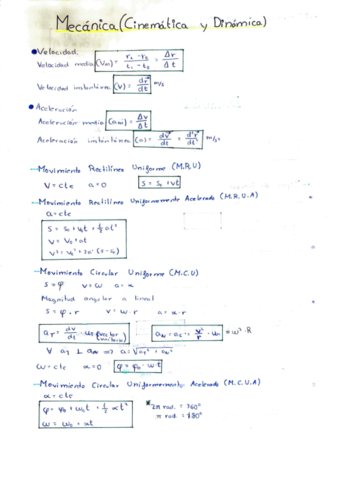 Mecánica (Cinemática y Dinámica)
Velocidad.
Velocidad media (Vm) = r₂ - r₀ / t₁ - t₀ = Δr / Δt
Velocidad instantánea (V) = dr / dt m/s
Aceleración
Aceleración media (am) = Δv / Δt
Aceleración instantánea (a) = dv / dt = d²r / dt² m/s²
Movimiento Rectilíneo Uniforme (M.R.U)
V = cte a = 0 S = S₀ + vt
Movimiento Rectilíneo Uniformemente Acelerado (M.R.U.A)
a = cte
S = S₀ + V₀t + ½ at²
V = V₀ + at
V² = V₀² + 2a · (S - S₀)
Movimiento Circular Uniforme (M.C.U)
S = φ V = ω a = α
Magnitud angular a lineal
S = φ · r V = ω · r a = α · r
aτ = dv / dt · uτ (vector unitario) aN = ac = V² / r · uN = ω² · R
∀ aτ ⊥ aN ⇒ a = √aτ² + aN²
ω = cte α = 0 φ = φ₀ · ωt
Movimiento Circular Uniformemente Acelerado (M.C.U.A)
α = cte
φ = φ₀ + ω₀t + ½ αt² * 2π rad. = 360°
ω = ω₀ + αt π rad. = 180°